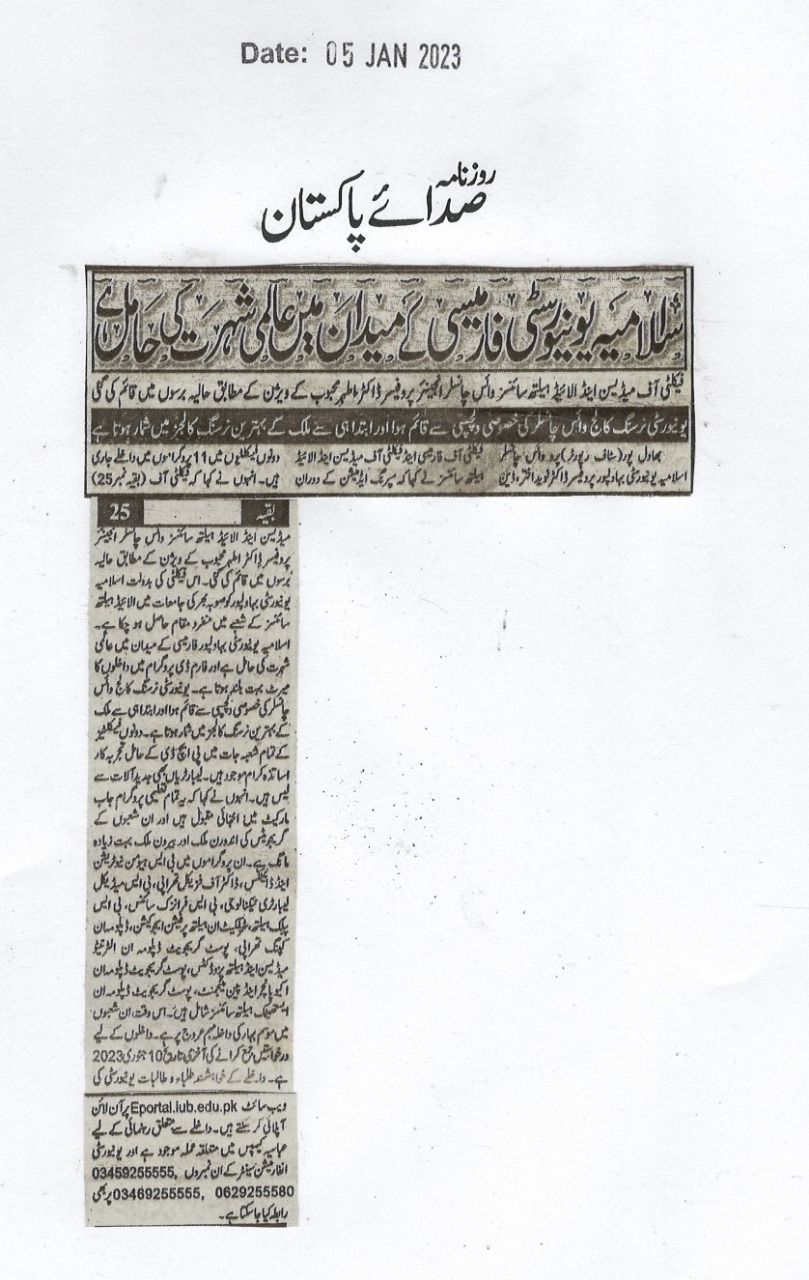 Date: 05 JAN 2023
روزنامہ
صدائے پاکستان
اسلامیہ یونیورسٹی فارمیسی کے میدان میں عالمی شہرت کی حامل ہے
فیکلٹی آف میڈیسن اینڈ الائیڈ ہیلتھ سائنسز وائس چانسلر انجینئر پروفیسر ڈاکٹر اطہر محبوب کے ویژن کے مطابق حالیہ برسوں میں قائم کی گئی
یونیورسٹی نرسنگ کالج وائس چانسلر کی خصوصی دلچسپی سے قائم ہوا اور ابتدا ہی سے ملک کے بہترین نرسنگ کالجز میں شمار ہوتا ہے
بہاول پور (سٹاف رپورٹر) پرو وائس چانسلر
اسلامیہ یونیورسٹی بہاولپور پروفیسر ڈاکٹر نوید اختر، ڈین
فیکلٹی آف فارمیسی اینڈ فیکلٹی آف میڈیسن اینڈ الائیڈ
ہیلتھ سائنسز نے کہا کہ سپرنگ ایڈمیشن کے دوران
دونوں فیکلٹیوں میں 11 پروگراموں میں داخلے جاری
ہیں۔ انہوں نے کہا کہ فیکلٹی آف (بقیہ نمبر 25)
بقیہ 25
میڈیسن اینڈ الائیڈ ہیلتھ سائنسز وائس چانسلر انجینئر
پروفیسر ڈاکٹر اطہر محبوب کے ویژن کے مطابق حالیہ
برسوں میں قائم کی گئی۔ اس فیکلٹی کی بدولت اسلامیہ
یونیورسٹی بہاولپور کو صوبہ بھر کی جامعات میں الائیڈ ہیلتھ
سائنسز کے شعبے میں منفرد مقام حاصل ہو چکا ہے۔
اسلامیہ یونیورسٹی بہاولپور فارمیسی کے میدان میں عالمی
شہرت کی حامل ہے اور فارم ڈی پروگرام میں داخلوں کا
میرٹ بہت بلند ہوتا ہے۔ یونیورسٹی نرسنگ کالج وائس
چانسلر کی خصوصی دلچسپی سے قائم ہوا اور ابتدا ہی سے ملک
کے بہترین نرسنگ کالجز میں شمار ہوتا ہے۔ دونوں فیکلٹیز
کے تمام شعبہ جات میں پی ایچ ڈی کے حامل تجربہ کار
اساتذہ کرام موجود ہیں۔ لیبارٹریاں بھی جدید آلات سے
لیس ہیں۔ انہوں نے کہا کہ یہ تمام تعلیمی پروگرام جاب
مارکیٹ میں انتہائی مقبول ہیں اور ان شعبوں کے
گریجویٹس کی اندرون ملک اور بیرون ملک بہت زیادہ
مانگ ہے۔ ان پروگراموں میں بی ایس ہیومن نیوٹریشن
اینڈ ڈائٹیٹکس، ڈاکٹر آف فزیکل تھراپی، بی ایس میڈیکل
لیبارٹری ٹیکنالوجی، بی ایس فرانزک سائنس، بی ایس
پبلک ہیلتھ، سرٹیفکیٹ ان ہیلتھ پروفیشن ایجوکیشن، ڈپلومہ ان
کپنگ تھراپی، پوسٹ گریجویٹ ڈپلومہ ان الٹرنیٹو
میڈیسن اینڈ ہیلتھ پروڈکٹس، پوسٹ گریجویٹ ڈپلومہ ان
اکیوپنکچر اینڈ پین مینجمنٹ، پوسٹ گریجویٹ ڈپلومہ ان
ایستھیٹک ہیلتھ سائنسز شامل ہیں۔ اس وقت ان شعبوں
میں موسم بہار کی داخلہ مہم عروج پر ہے۔ داخلوں کے لیے
درخواستیں جمع کرانے کی آخری تاریخ 10 جنوری 2023
ہے۔ داخلے کے خواہشمند طلباء و طالبات یونیورسٹی کی
ویب سائٹ Eportal.iub.edu.pk پر آن لائن
اپلائی کر سکتے ہیں۔ داخلے سے متعلق رہنمائی کے لیے
عباسیہ کیمپس میں متعلقہ عملہ موجود ہے اور یونیورسٹی
انفارمیشن سینٹر کے ان نمبروں 03459255555,
03469255555, 0629255580 پر بھی
رابطہ کیا جا سکتا ہے۔